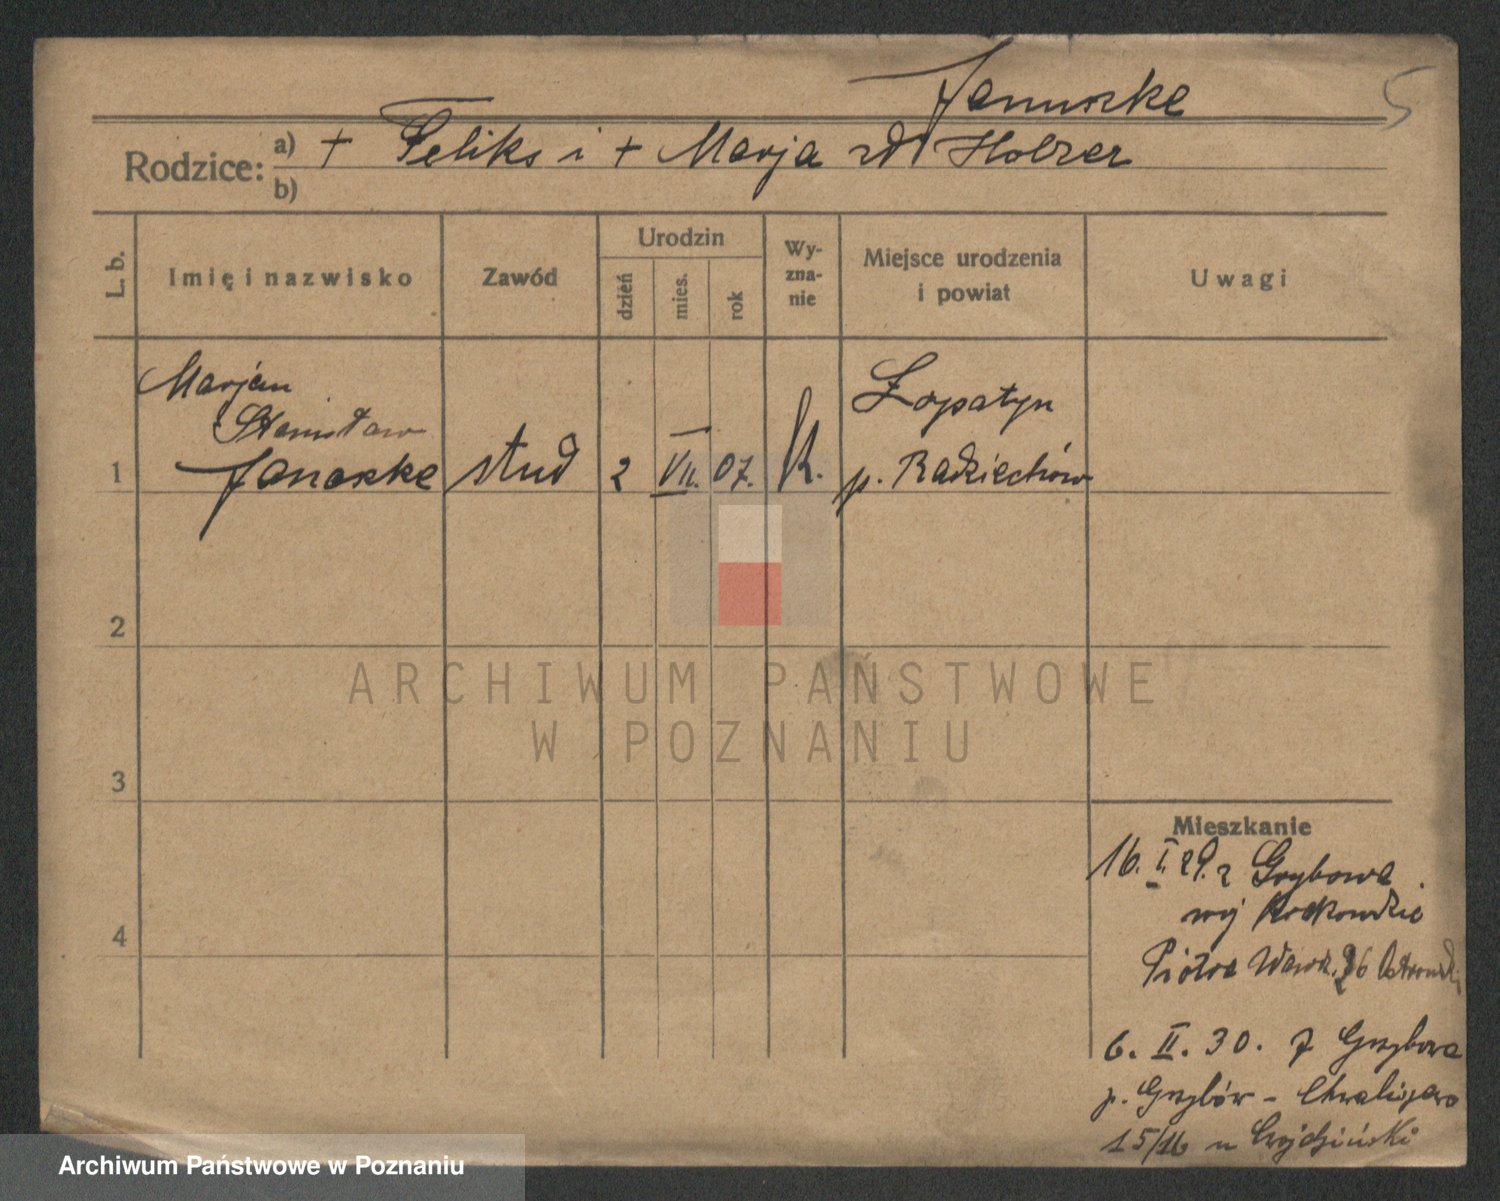 Januszke
5
Rodzice: a) + Feliks i + Marja zd Holzer
b)
L. b.
Imię i nazwisko
Zawód
Urodzin
dzień
mies.
rok
Wy-
zna-
nie
Miejsce urodzenia
i powiat
Uwagi
Marjan
Stanisław
1 Januszke stud 2 VII. 07. k.
Łopatyn
p. Radziechów
2
3
4
Mieszkanie
16. I. 29. z Grybowa
woj Krakowskie
Piotra Wawrz. 26
6. II. 30. z Grzybowa
p. Grzybów - Chwaliszewo
15/16 u
ARCHIWUM PAŃSTWOWE
W POZNANIU
Archiwum Państwowe w Poznaniu